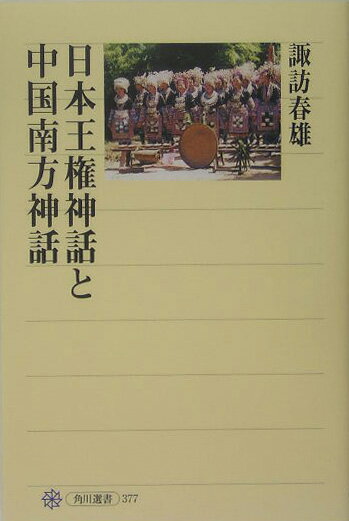 諏訪春雄
日本王権神話と
中国南方神話
角川選書 377